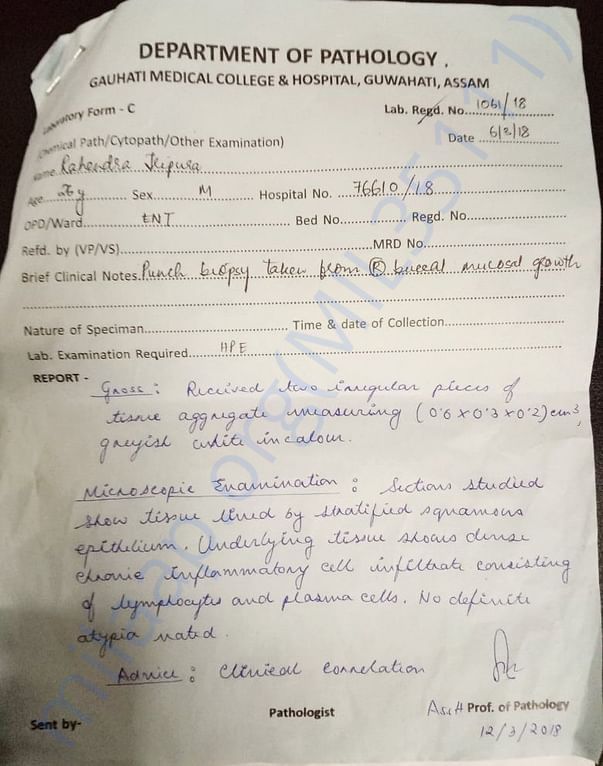 DEPARTMENT OF PATHOLOGY .
GAUHATI MEDICAL COLLEGE & HOSPITAL, GUWAHATI, ASSAM
Laboratory Form - C
Lab. Regd. No. 1061/18
(Chemical Path/Cytopath/Other Examination)
Date 6/2/18
Name Rahendra Tripura
Age Sex M Hospital No. 76610/18
OPD/Ward ENT Bed No. Regd. No.
Refd. by (VP/VS) MRD No.
Brief Clinical Notes. Punch biopsy taken from Ⓡ buccal mucosal growth
Nature of Specimen Time & date of Collection
Lab. Examination Required HPE
REPORT -
Gross : Received two irregular pieces of
tissue aggregate measuring (0.6 x 0.3 x 0.2) cm³,
greyish white in colour.
Microscopic Examination : Sections studied
show tissue lined by stratified squamous
epithelium. Underlying tissue shows dense
chronic inflammatory cell infiltrate consisting
of lymphocytes and plasma cells. No definite
atypia noted.
Advice : Clinical correlation
Asstt Prof. of Pathology
Pathologist
12/3/2018
Sent by-
milaap.org(MIL35111)